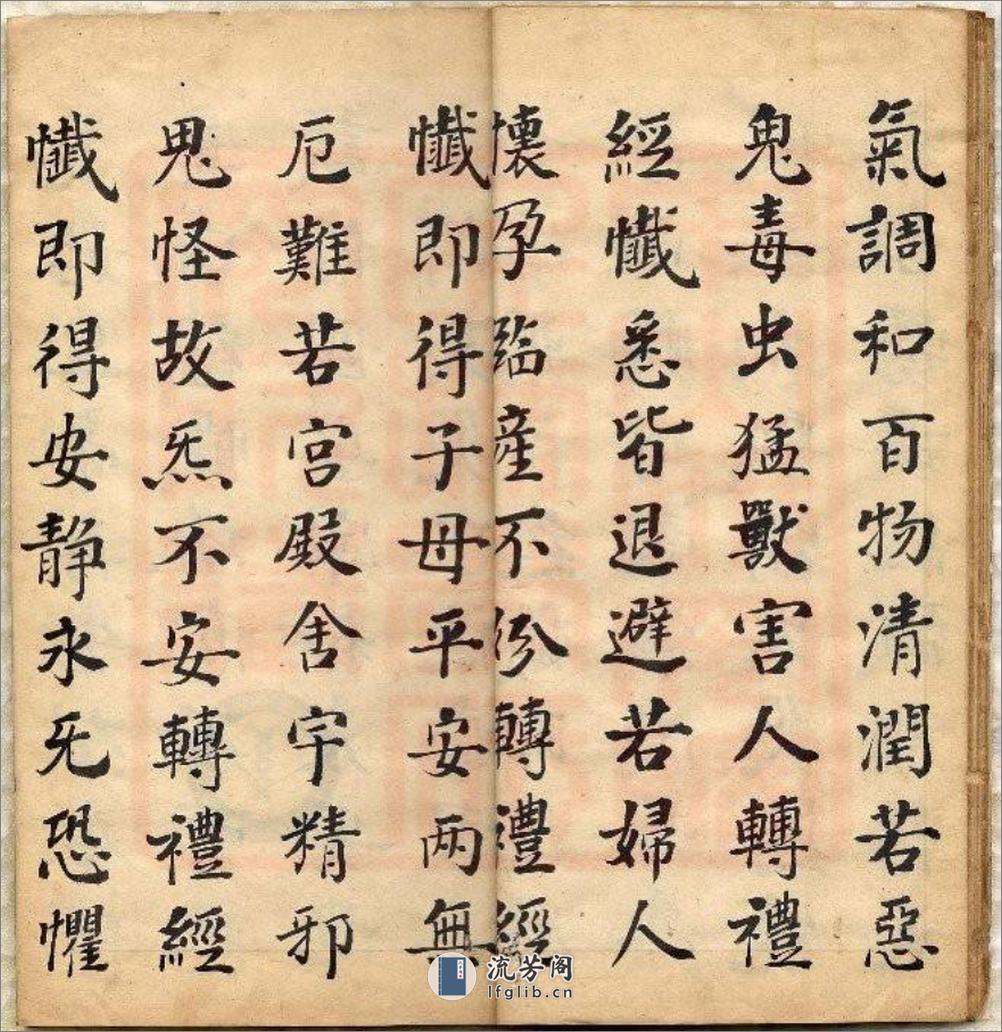 氣調和百物清潤若惡
鬼毒虫猛獸害人轉禮
經懺悉皆退避若婦人
懷孕臨產不分轉禮經
懺即得子母平安兩無
厄難若宮殿舍宇精邪
鬼怪故炁不安轉禮經
懺即得安静永旡恐懼
流芳阁
lfglib.cn